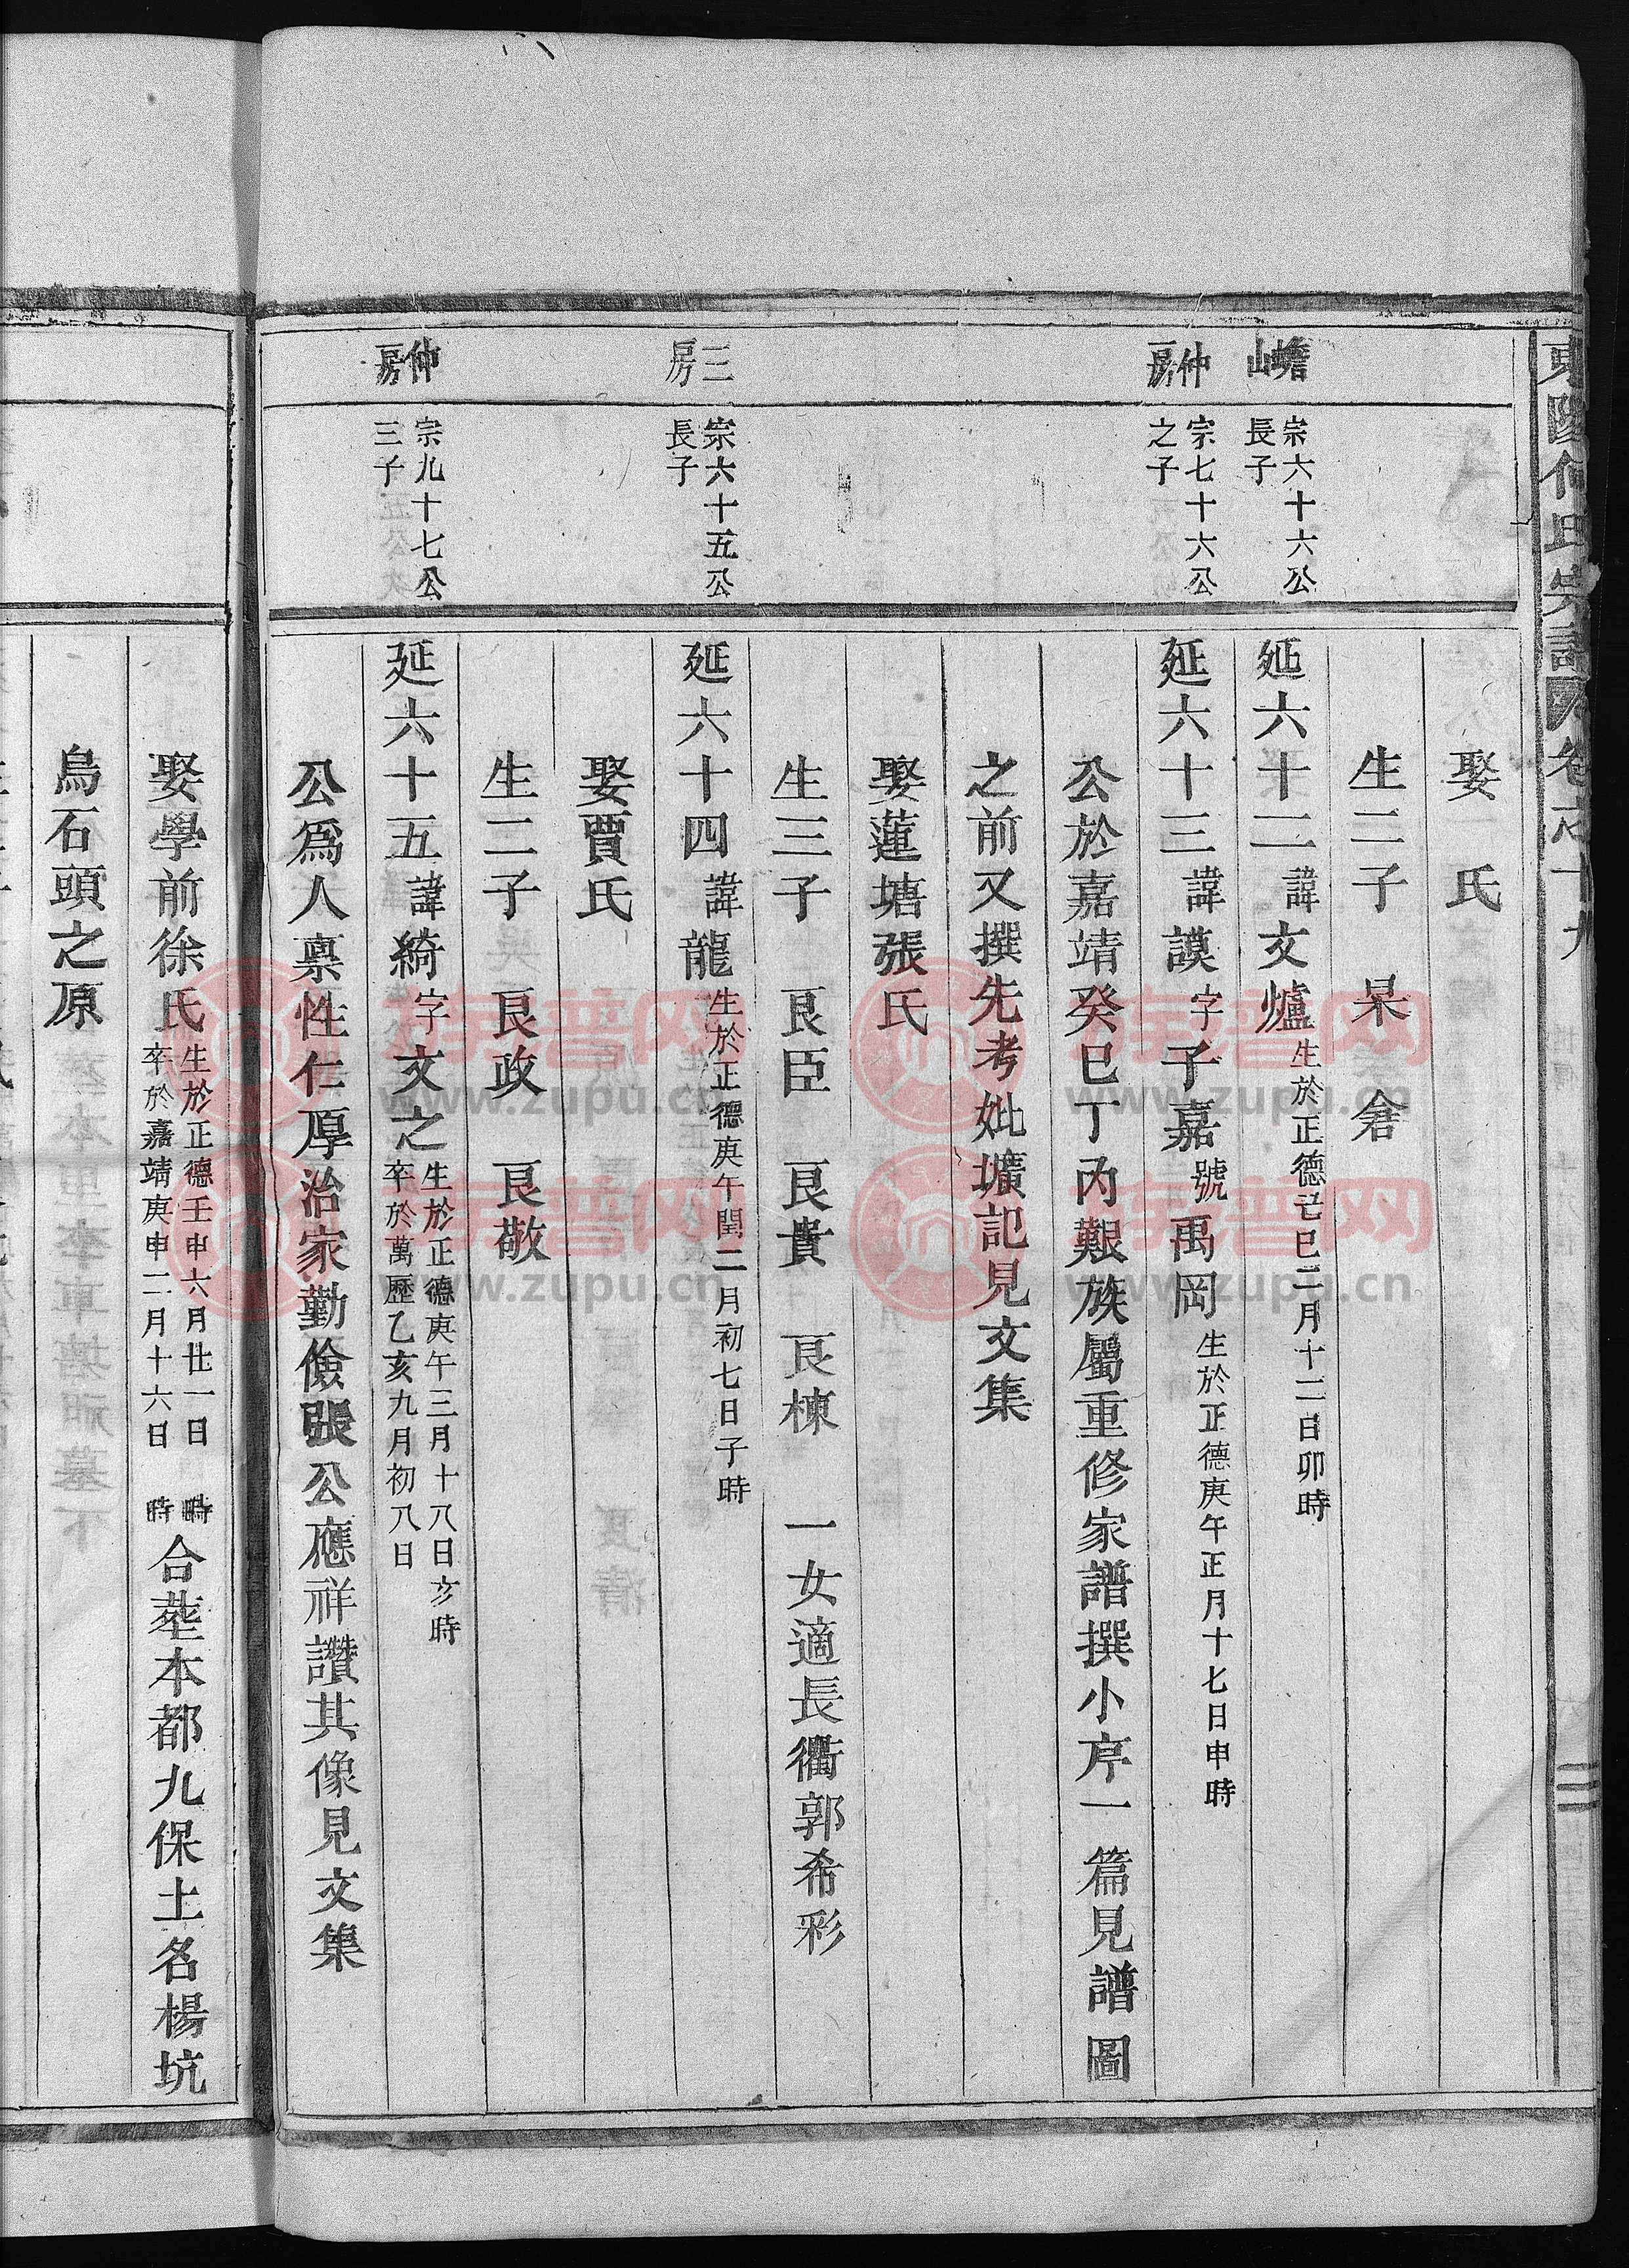 娶　氏
生二子　杲　鋡
蟾山
宗六十六公
長子
延六十二諱文爐生於正德己巳二月十二日卯時
仲房
宗七十六公
之子
延六十三諱謨字子嘉號禹岡生於正德庚午正月十七日申時
公於嘉靖癸巳丁內艱族屬重修家譜撰小序一篇見譜圖
之前又撰先考妣壙記見文集
娶蓮塘張氏
生三子　艮臣　艮貴　艮棟　一女適長衢郭希彩
三房
宗六十五公
長子
延六十四諱龍生於正德庚午閏二月初七日子時
娶賈氏
生二子　艮政　艮敬
仲房
宗九十七公
三子
延六十五諱綺字文之生於正德庚午三月十八日亥時
卒於萬歷乙亥九月初八日
公爲人禀性仁厚治家勤儉張公應祥讚其像見文集
娶學前徐氏生於正德壬申六月廿一日　時
卒於嘉靖庚申二月十六日　時
合塟本都九保土名楊坑
烏石頭之原
族譜网
www.zupu.cn
族譜网
www.zupu.cn
族譜网
www.zupu.cn
族譜网
www.zupu.cn